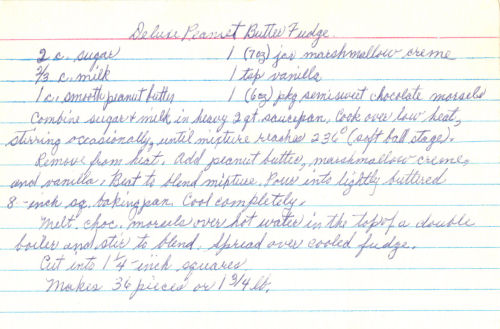 Deluxe Peanut Butter Fudge
2 c. sugar 1 (7oz) jar marshmallow creme
2/3 c. milk 1 tsp vanilla
1 c. smooth peanut butter 1 (6oz) pkg semisweet chocolate morsels
Combine sugar & milk in heavy 2 qt. saucepan. Cook over low heat,
stirring occasionally, until mixture reaches 236° (soft ball stage).
Remove from heat. Add peanut butter, marshmallow creme,
and vanilla. Beat to blend mixture. Pour into lightly buttered
8-inch sq. baking pan. Cool completely.
Melt choc. morsels over hot water in the top of a double
boiler and stir to blend. Spread over cooled fudge.
Cut into 1 1/4-inch squares
Makes 36 pieces or 1 3/4 lb.